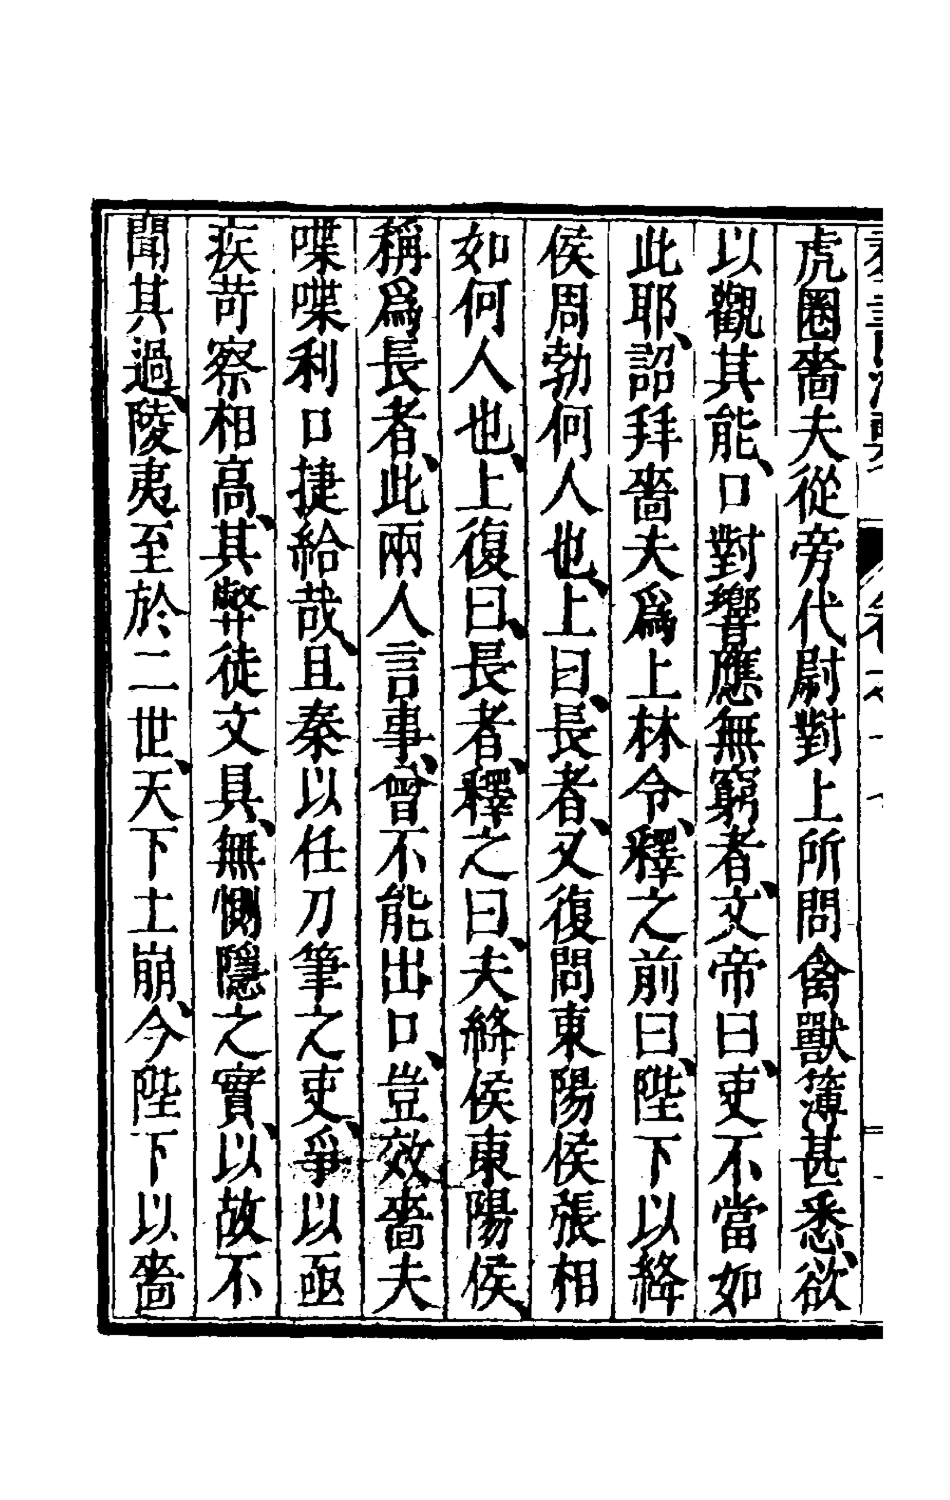 虎圈嗇夫從旁代尉對上所問禽獸簿甚悉、欲
以觀其能、口對響應無窮者、文帝曰、吏不當如
此耶、詔拜嗇夫爲上林令、釋之前曰、陛下以絳
侯周勃何人也、上曰、長者、又復問東陽侯張相
如何人也、上復曰、長者、釋之曰、夫絳侯東陽侯、
稱爲長者、此兩人言事、曾不能出口、豈效嗇夫
喋喋利口捷給哉、且秦以任刀筆之吏、爭以亟
疾苛察相高、其弊徒文具、無惻隱之實、以故不
聞其過、陵夷至於二世、天下土崩、今陛下以嗇